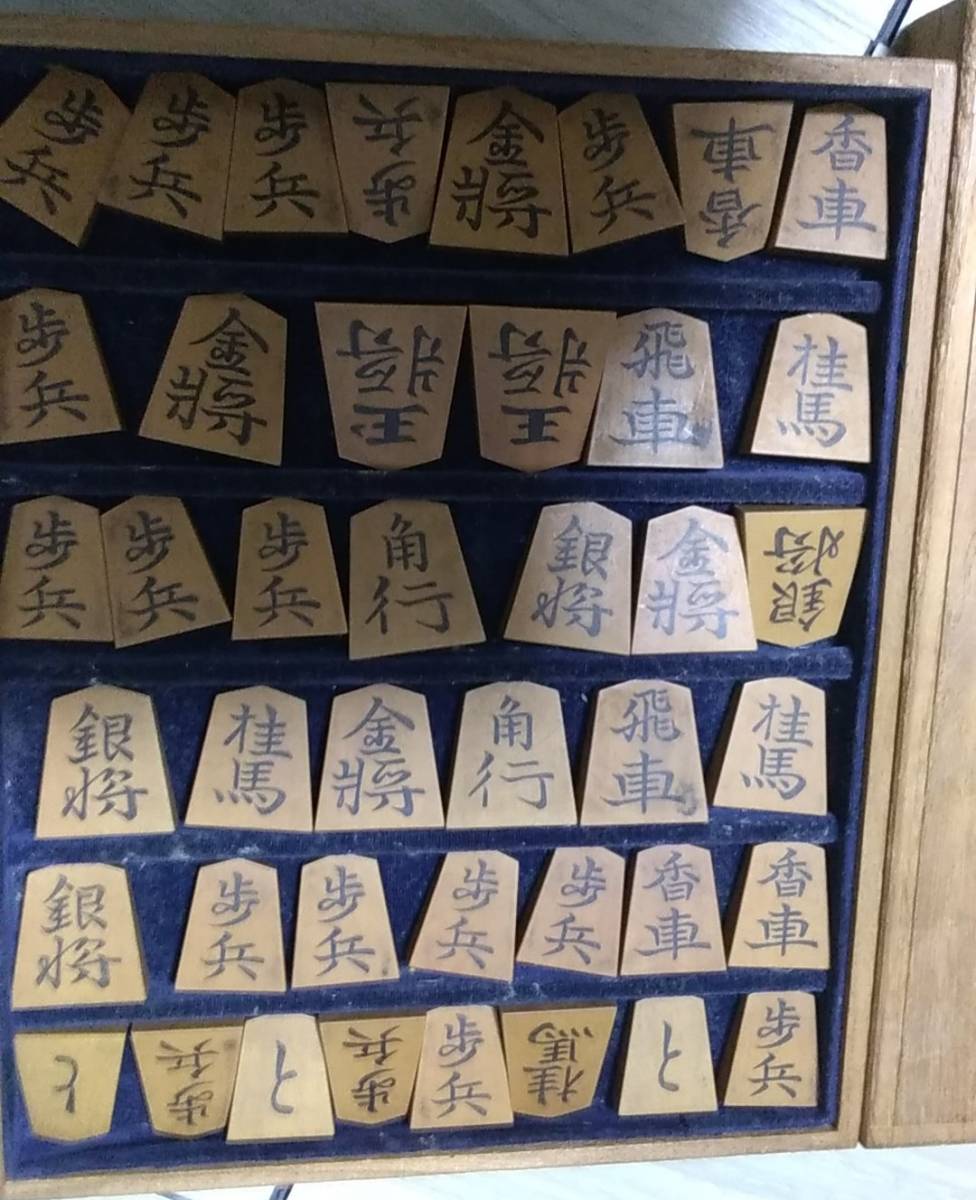 歩兵 歩兵 歩兵 歩兵 金將 歩兵 香車 香車
歩兵 金將 玉将 王将 飛車 桂馬
歩兵 歩兵 歩兵 角行 銀将 金將 銀将
銀将 桂馬 金將 角行 飛車 桂馬
銀将 歩兵 歩兵 歩兵 歩兵 香車 香車
と 歩兵 と 歩兵 歩兵 桂馬 と 歩兵